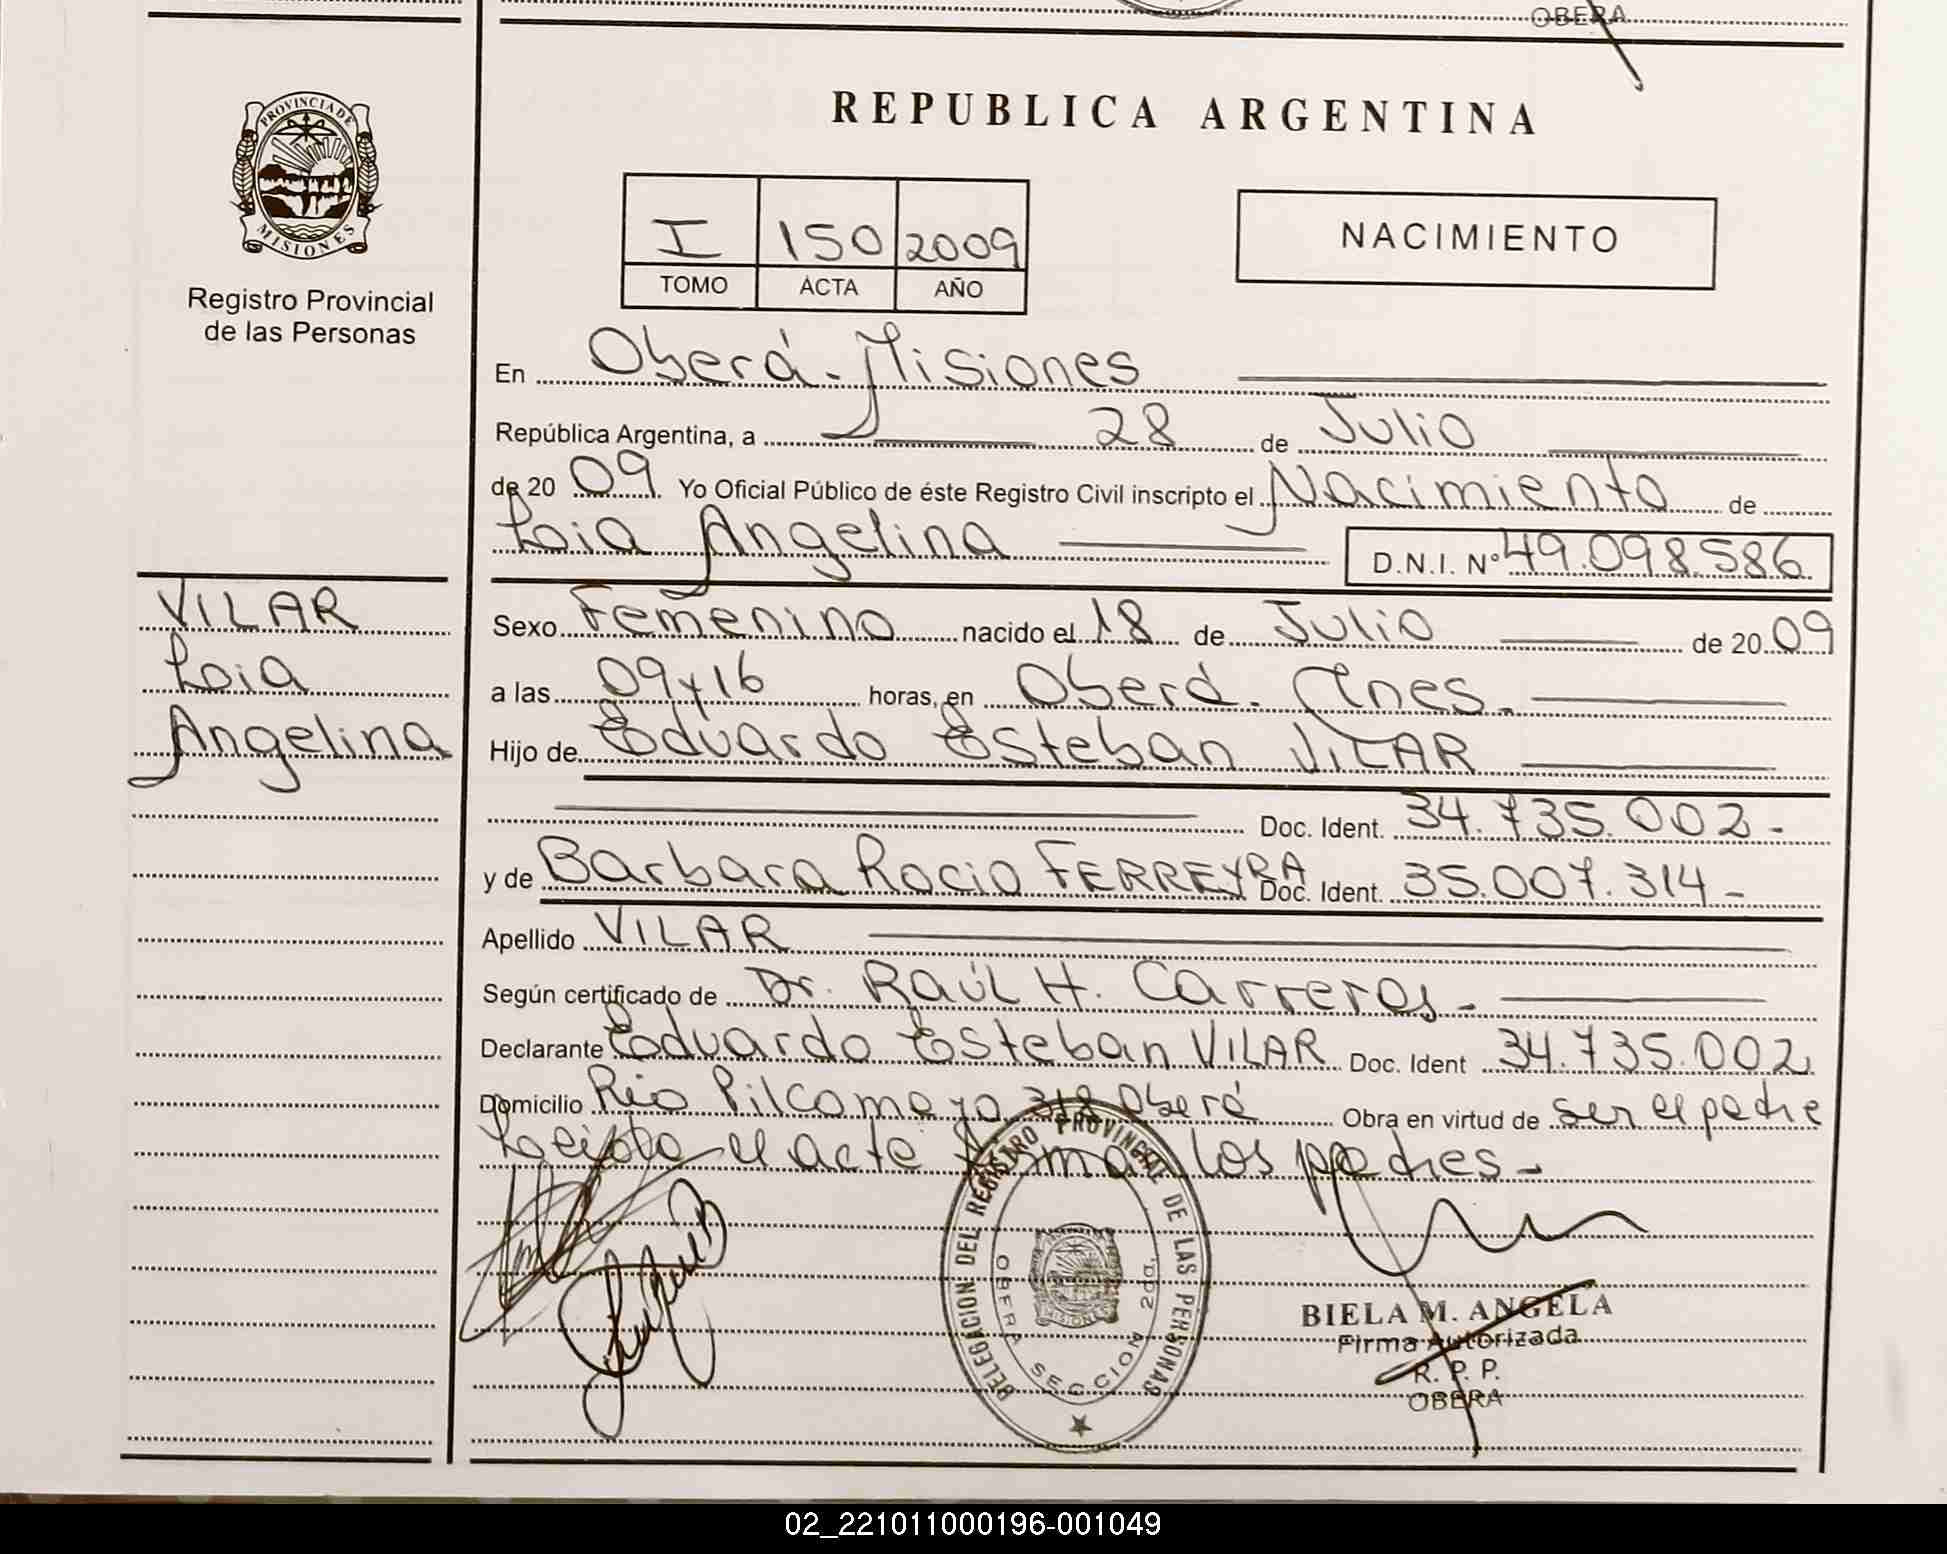 OBERA
PROVINCIA DE
MISIONES
Registro Provincial
de las Personas
REPUBLICA ARGENTINA
I 150 2009
TOMO ACTA AÑO
NACIMIENTO
En Oberá - Misiones
República Argentina, a 28 de Julio
de 2009 Yo Oficial Público de éste Registro Civil inscripto el Nacimiento de
Loia Angelina D.N.I. Nº 49.098.586
VILAR
Loia
Angelina
Sexo Femenino nacido el 18 de Julio de 2009
a las 09 y 16 horas, en Oberá. Mnes.
Hijo de Eduardo Esteban VILAR
Doc. Ident. 34.735.002-
y de Barbara Rocio FERREYRA Doc. Ident. 35.007.314-
Apellido VILAR
Según certificado de Dr. Raúl H. Carreros-
Declarante Eduardo Esteban VILAR Doc. Ident 34.735.002
Domicilio Rio Pilcomayo 318 Oberá Obra en virtud de ser el padre
Leida el acta firman los padres-
DELEGACION DEL REGISTRO PROVINCIAL DE LAS PERSONAS
OBERA SECCION 2da.
MISIONES
BIELA M. ANGELA
Firma Autorizada
R. P. P.
OBERA
02_221011000196-001049